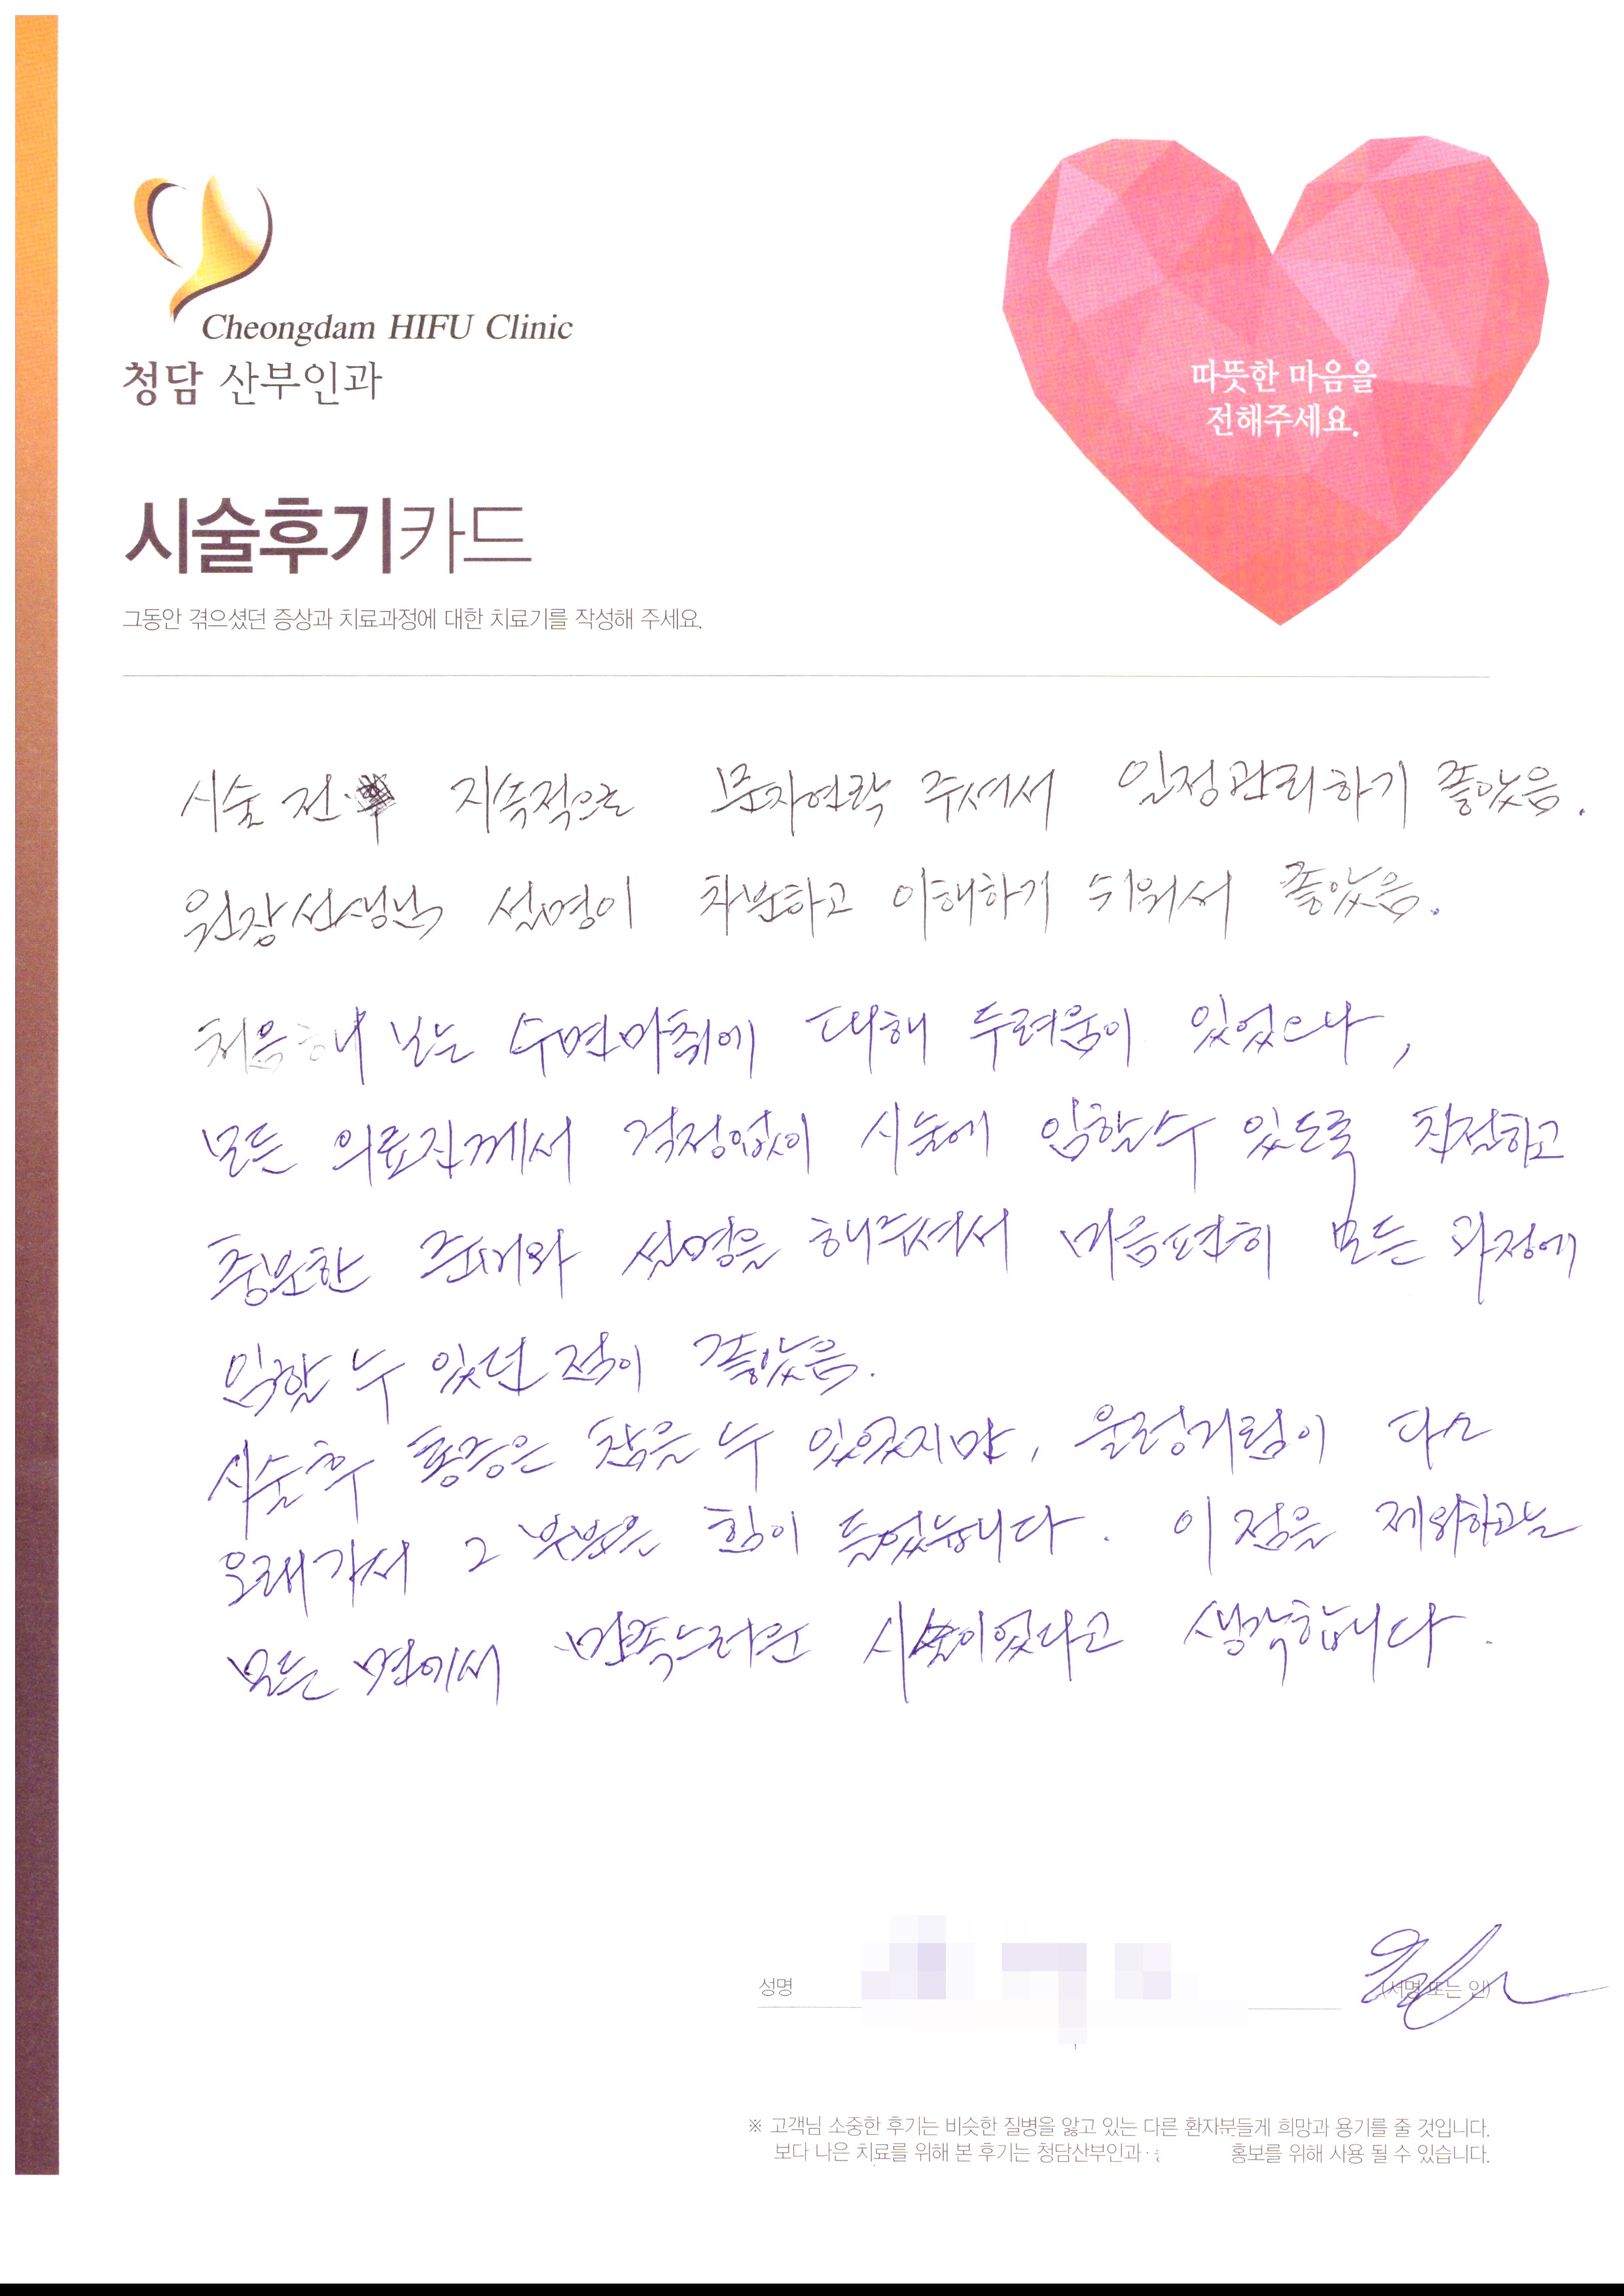 Cheongdam HIFU Clinic
청담 산부인과
따뜻한 마음을
전해주세요.
시술후기카드
그동안 겪으셨던 증상과 치료과정에 대한 치료기를 작성해 주세요.
시술 전 지속적으로 문자연락 주셔서 일정관리하기 좋았음.
원장선생님 설명이 차분하고 이해하기 쉬워서 좋았음.
처음해 보는 수면마취에 대해 두려움이 있었으나,
모든 의료진께서 걱정없이 시술에 임할수 있도록 친절하고
충분한 준비와 설명을 해주셔서 마음편히 모든 과정에
임할 수 있던 점이 좋았음.
시술후 통증은 참을 수 있었지만, 울렁거림이 다소
오래가서 그 부분은 힘이 들었습니다. 이 점을 제외하고는
모든 면에서 만족스러운 시술이었다고 생각합니다.
성명 (서명 또는 인)
※ 고객님 소중한 후기는 비슷한 질병을 앓고 있는 다른 환자분들게 희망과 용기를 줄 것입니다.
보다 나은 치료를 위해 본 후기는 청담산부인과· 홍보를 위해 사용 될 수 있습니다.